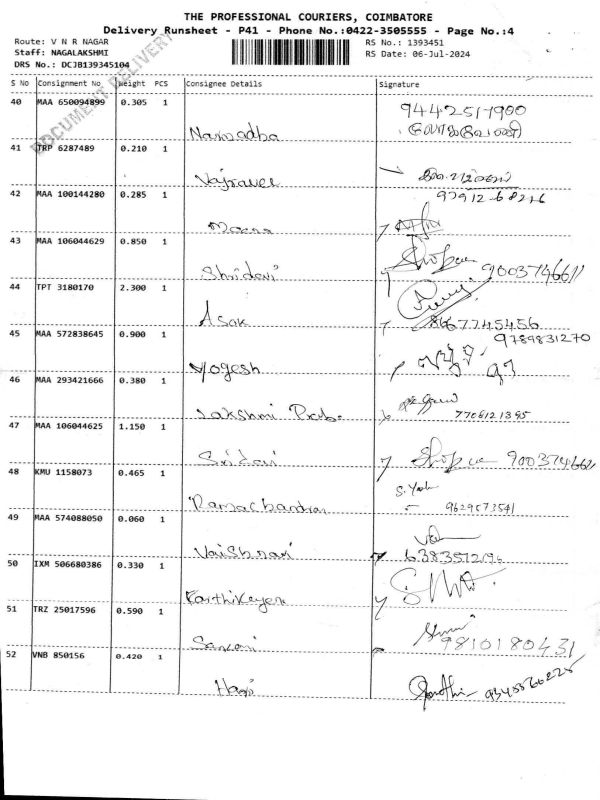 THE PROFESSIONAL COURIERS, COIMBATORE
Delivery Runsheet - P41 - Phone No.:0422-3505555 - Page No.:4
Route: V N R NAGAR
RS No.: 1393451
Staff: NAGALAKSHMI
RS Date: 06-Jul-2024
DRS No.: DCJB139345104
DOCUMENT DELIVERY
S No Consignment No Weight PCS Consignee Details Signature
40 MAA 650094899 0.305 1
Narmadha 9442517900
41 TRP 6287489 0.210 1
Vajravel
42 MAA 100144280 0.285 1
Meena
43 MAA 106044629 0.850 1
Shridevi 9003746611
44 TPT 3180170 2.300 1
Asok 8667745456
45 MAA 572838645 0.900 1 9789831270
Yogesh
46 MAA 293421666 0.380 1
Lakshmi 7706121395
47 MAA 106044625 1.150 1
Sridevi 9003746611
48 KMU 1158073 0.465 1
Ramachandran
49 MAA 574088050 0.060 1
Vaishnavi
50 IXM 506680386 0.330 1
Karthikeyen
51 TRZ 25017596 0.590 1
9810180431
52 VNB 850156 0.420 1